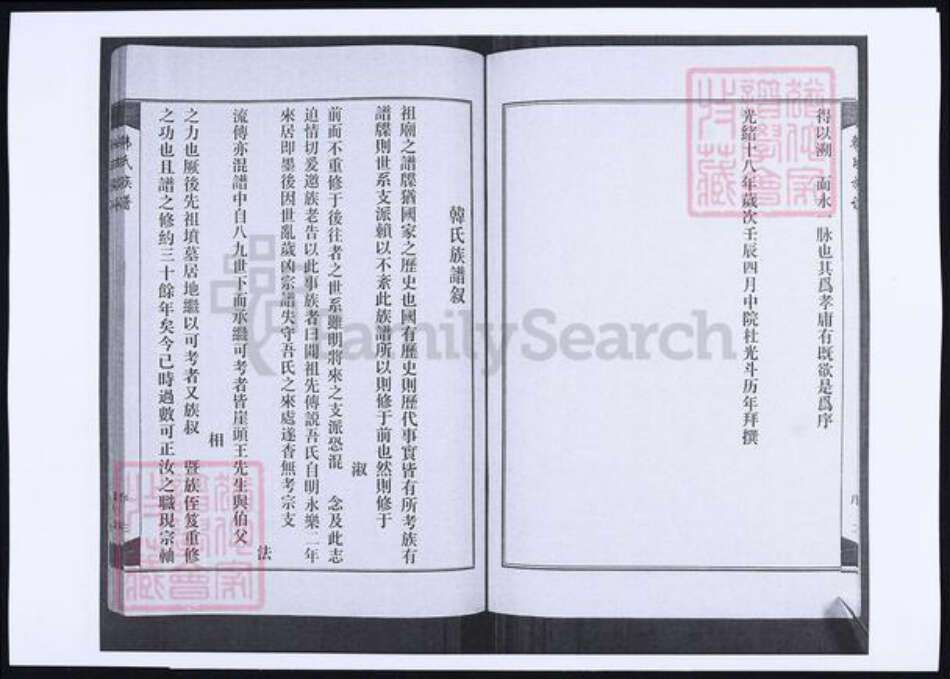 得以溯　而永一脉也其爲孝庸有既欲是爲序
光緒十八年歲次壬辰四月中院杜光斗历年拜撰
韓氏族譜叙
祖廟之譜牒猶國家之歷史也國有歷史則歷代事實皆有所考族有
譜牒則世系支派賴以不紊此族譜所以則修于前也然則修于
淑
前而不重修于後往者之世系雖明將來之支派恐混　念及此志
迫情切爰邀族老告以此事族者曰聞祖先傳説吾氏自明永樂二年
來居即墨後因世亂歲凶宗譜失守吾氏之來處遂杳無考宗支
法
流傳亦混譜中自八九世下而承繼可考者皆崖頭王先生與伯父
相
之力也厥後先祖墳墓居地繼以可考者又族叔　暨族侄笈重修
之功也且譜之修約三十餘年矣今己時過數可正汝之職現宗軸
韩氏族譜
FamilySearch